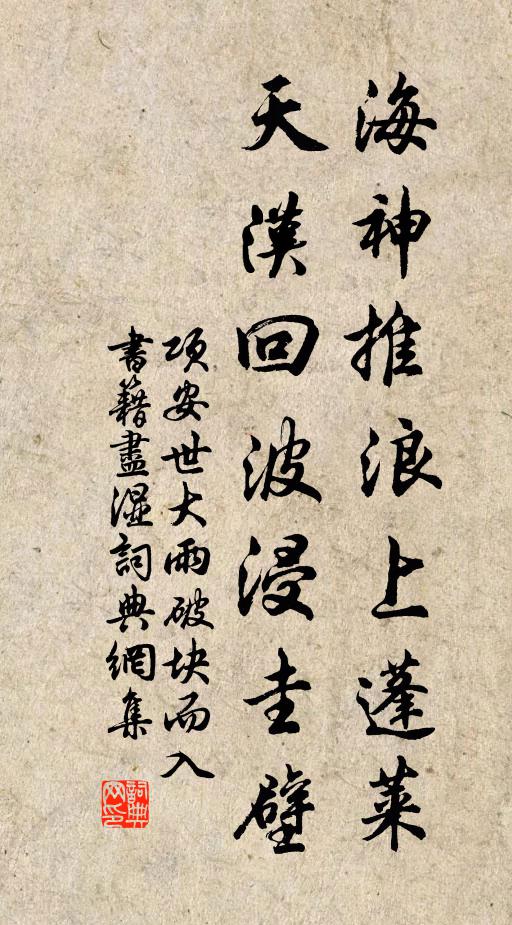 海神推浪上蓬萊
天漢回波浸圭壁
項安世大雨破块而入
書籍盡濕詞典網集
詞典网印